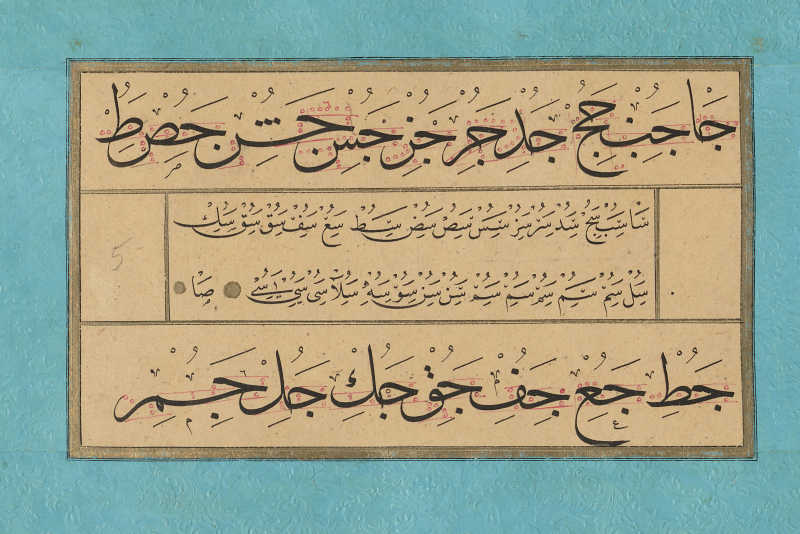 جا جب جج جد جر جز جس جش جص ط
سا سب سج سد سر سز سس سص سض سط سع سف سق سك
سل سم سم سم سم سم سن سن سو سه سلا سى سى سے صا
جط جع جف جق جك جل جم
5